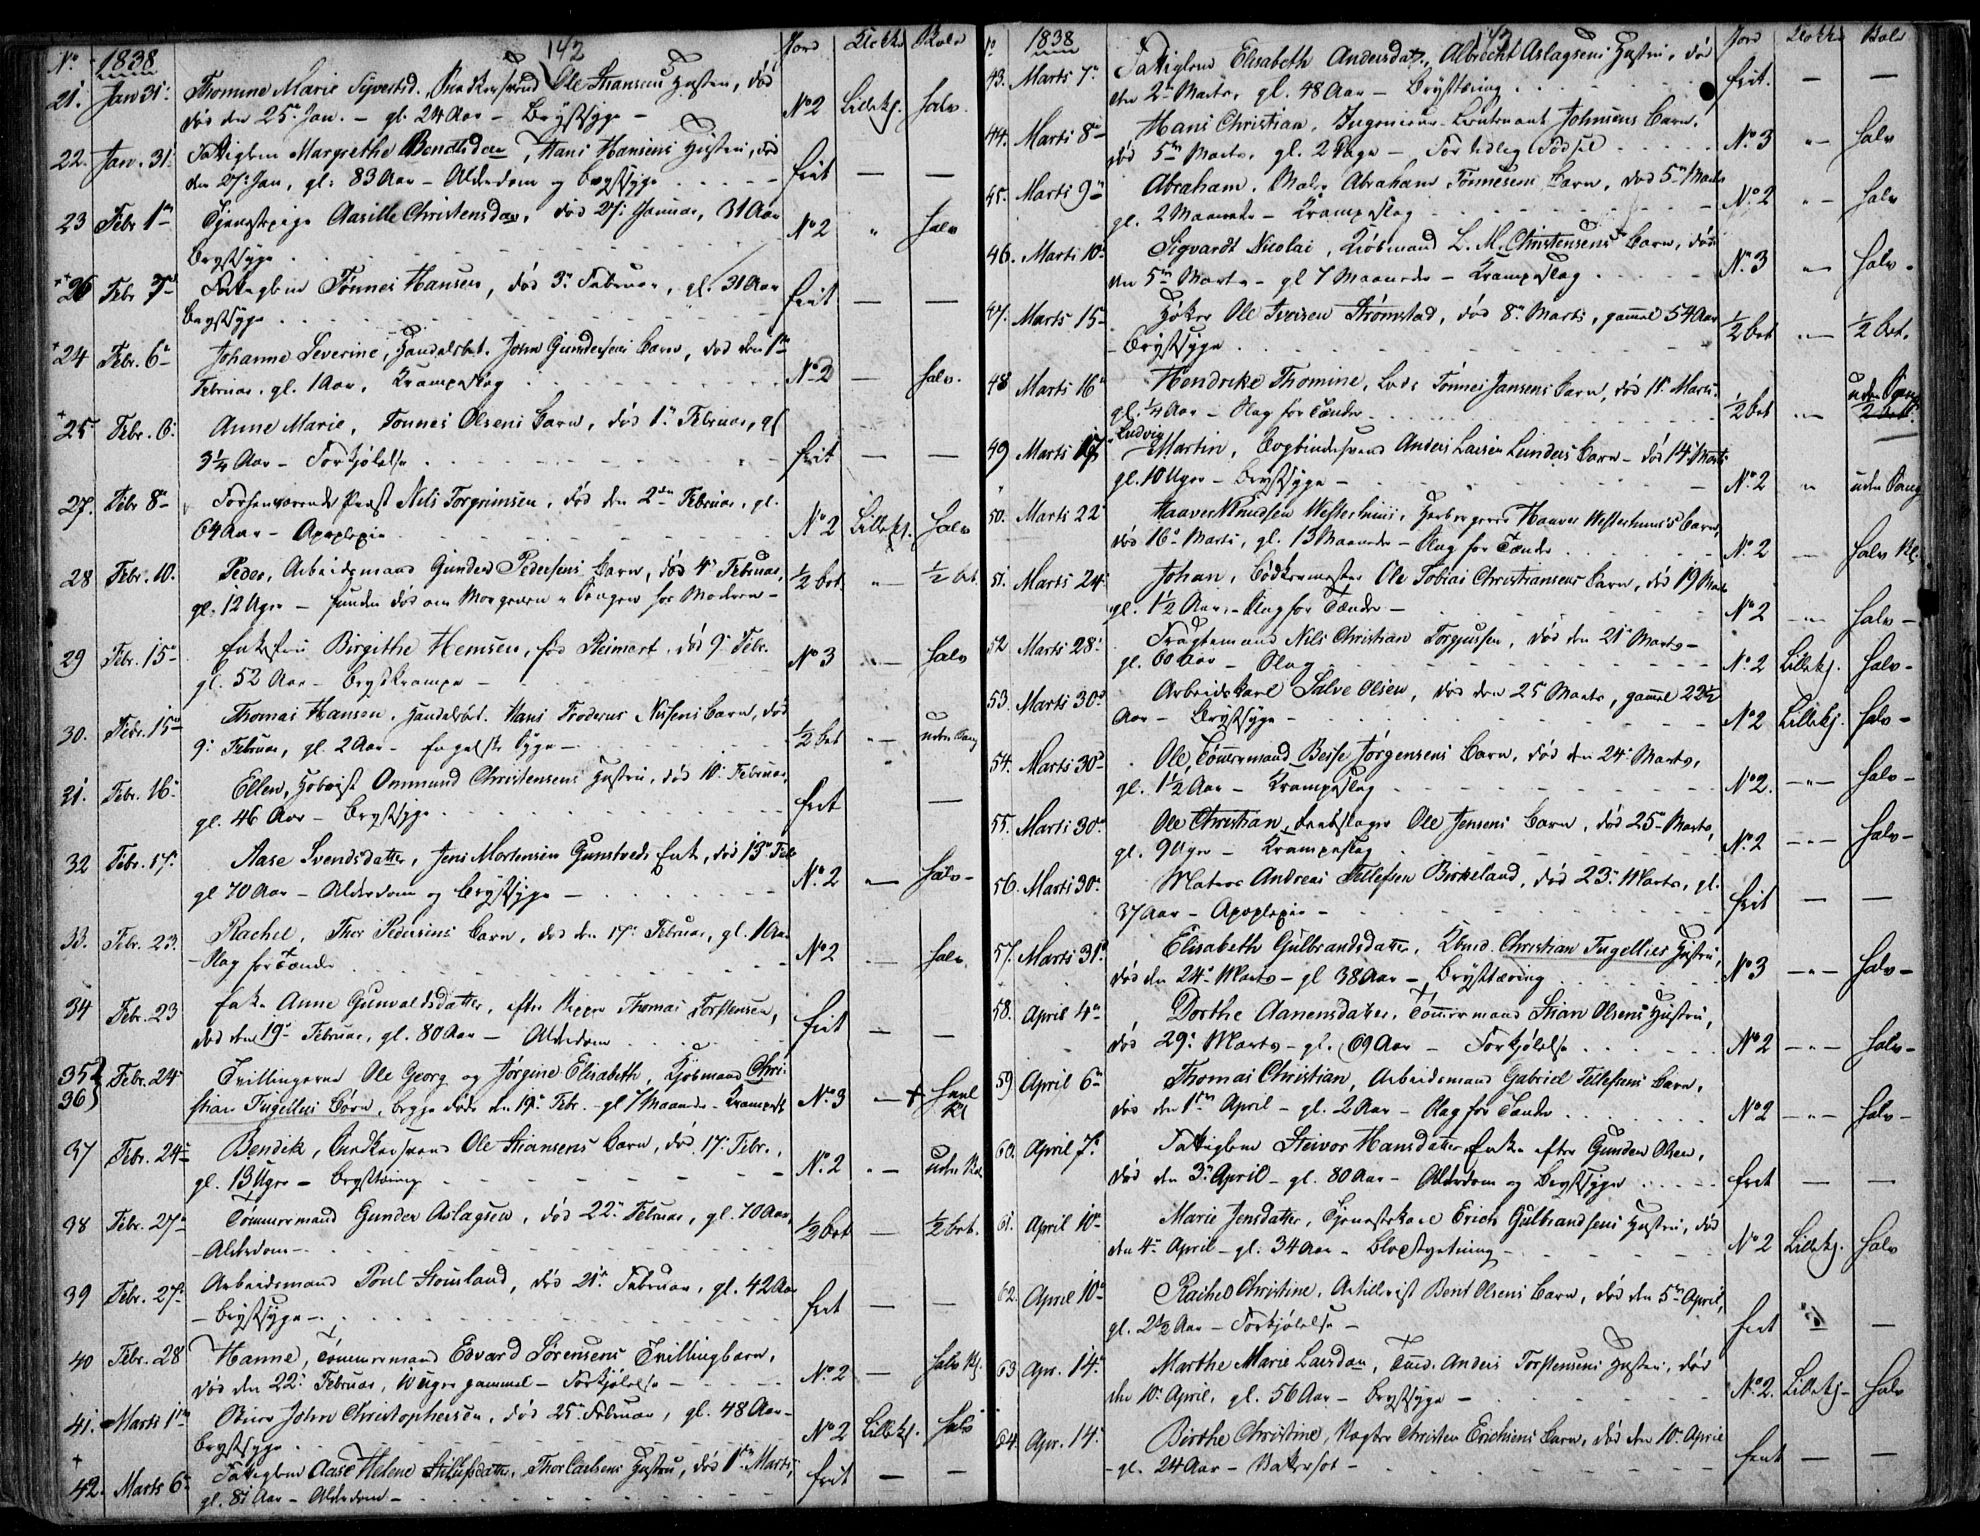 142
No 1838 Jord Klokke Bolv
21. Jan 31. Thomine Marie Syvertsd. Ole Stiansens Hustru, død
død den 25. Jan. – gl. 24 Aar – Brystsyge – No 2 Lillekl. halv.
22. Jan. 31. Fattiglem Margrethe Bendtsdatter, Hans Hansens Hustru, død
den 27. Jan, gl. 83 Aar – Alderdom og Brystsyge frit — —
23 Febr 1ste Tjenestepige Aasille Christensdatter, død 27. Januar, 31 Aar
Brystsyge No 2 " halv
26 Febr 7de Fattiglem Tønnes Hansen, død 3. Februar, gl. 31 Aar
Brystsyge frit — —
24 Febr. 6 Johanne Severine, Handelsbet. John Gundersens Barn, død den 1ste
Februar. gl. 1 Aar, Krampeslag No 2 — halv.
25 Febr. 6. Anne Marie, Tønnes Olsens Barn, død 1. Februar, gl
3¼ Aar – Forkjølelse frit — —
27. Febr 8 Forhenværende Nils Torgrimsen, død den 2den Februar, gl.
64 Aar – Apoplexie No 2 Lillekl. halv
28 Febr. 10. Peder, Arbeidsmand Gunder Pedersens Barn, død 4 Februar,
gl. 12 Uger – funden død om Morgenen i Sengen hos Moderen – ½ bet. " — ½ bet.
29 Febr. 15 Enkefru Birgithe Hemsen, fød Reimert, død 9 Febr.
gl. 52 Aar – Brystkrampe – No 3 " — halv
30. Febr. 15 Thomas Hansen, Handelsbet. Hans Nilsens Barn, død
9. Februar, gl. 2 Aar – Engelsk Syge – ½ bet " — uden Sang
31. Febr. 16. Ellen, Ommund Christensens Hustru, død 10. Februar,
gl. 46 Aar – Brystsyge frit —
32 Febr. 17. Aase Svendsdatter, Jens Mortensen Gunstveds Enke, død 13 Febr
gl 70 Aar – Alderdom og Brystsyge – No. 2 — halv –
33. Febr. 23. Rachel, Thor Pedersens Barn, død den 17. Februar, gl. 1 Aar
– Slag for Tænder No 2 — halv
34 Febr. 23 Enke Anne Gunvaldsdatter, efter Thomas Torstensen,
død den 19. Februar, gl. 80 Aar – Alderdom frit — —
35 Febr. 24 Tvillingerne Ole Georg og Jørgine Elisabeth, Kjøbmand Chri-
36 stian Fugellies Børn, begge døde den 19. Febr. gl 7 Maaneder – Krampesl No. 3 — + halv Kl
37 Febr. 24 Bendik, Ole Stiansens Barn, død 17. Febr.,
gl. 13 Uger – Brysttæring No. 2 " — uden Kl.
38 Febr. 27 Tømmermand Gunder Aslagsen, død 22. Februar, gl. 70 Aar,
– Alderdom – ½ bet — ½ bet.
39 Febr. 27. Arbeidsmand Poul Stousland, død 21. Februar, gl. 42 Aar
– Brystsyge – frit — —
40 Febr. 28 Hanne, Tømmermand Edvard Sørensens Tvillingbarn,
død den 22. Februar, 10 uger gammel – Forkjølelse – No. 2 — halv Kl.
41. Marts 1ste John Christophersen, død 25. Februar, gl. 48 Aar –
Brystsyge No 2 Lillekl. halv
42. Marts 6. Fattiglem Aase Helene Tellefsdatter, Thor Carlsens Hustru, død 1ste Marts,
gl. 81 Aar – Alderdom – frit — —
1838 Jord Klokke Bolv
43. Marts 7. Fattiglem Elisabeth Andersdatter, Albrecht Aslagsens Hustru, død
den 2. Marts, gl. 48 Aar – Brysttæring frit. — —
44. Marts 8 Hans Christian, Ingenieur-Lieutenant Johnsens Barn,
død 5te Marts, gl. 2 Dage – For tidlig Fødsel No 3 " — halv
45. Marts 9 Abraham, Abraham Tønnesens Barn, død 5te Marts
gl. 2 Maaneder – Krampeslag No 2 " — halv
46. Marts 10 Sigvardt Nicolai, Kjøbmand L. M. Christensens Barn, død
den 5te Marts – gl 7 Maaneder – Krampeslag No 3 — halv.
47. Marts 15 Høker Ole Iversen Strømstad, død 8. Marts, gammel 54 Aar
– Brystsyge ½ bet " — ½ bet.
48 Marts 16 Hendrike Thomine, Lods Tønnes Jansens Barn, død 11. Marts
gl. ¼ Aar – Slag for Tænder ½ bet " — uden Sang
49 Marts 17 Ludvig Martin, Bogbindersvend Anders Larsen Lunders Barn – død 14. Marts
gl. 10 Uger – Brystsyge – No. 2 " uden Sang
50. Marts 22 Haaver Knudsen Westerhuus, Haaver Westerhuus's Barn,
død 16. Marts, gl. 13 Maaneder – Slag for Tænder No. 2 — halv Kl.
51. Marts 24 Johan, Bødkermester Ole Tobias Christiansens Barn, død 19 Marts
gl. 1½ Aar – Slag for Tænder – No 2 — halv –
52. Marts 28. Fragtemand Nils Christian Torgiussen, død den 21 Marts –
gl. 60 Aar – Slag No 2 Lillekl. halv –
53. Marts 30 Arbeidskarl Salve Olsen, død den 25 Marts, gammel 22½
Aar – Brystsyge – No 2 Lillekl. halv –
54. Marts 30 Ole, Tømmermand Beise Jørgensens Barn, død den 24. Marts,
gl. 1½ Aar – Krampeslag No 2. — " — halv –
55. Marts 30 Ole Christian, Ole Jensens Barn, død 25 Marts,
gl. 9 Uger – Krampeslag No. 2 — " — halv –
56. Marts 30. Matros Andreas Tellefsen Birkeland, død 23. Marts, gl.
37 Aar – Apoplexie – frit — —
57. Marts 31. Elisabeth Gulbrandsdatter, Kbmd. Christian Fugellies Hustru,
død den 24. Marts – gl 38 Aar – Brysttæring No 3 — " — halv –
58. April 4 Dorthe Aanensdatter, Tømmermand Stian Olsens Hustru,
død 29. Marts – gl. 69 Aar – Forkjølelse No 2 — " — halv –
59 April 6 Thomas Christian, Arbeidsmand Gabriel Tellefsens Barn,
død den 1ste April – gl. 2 Aar – Slag for Tænder No 2 — " — halv –
60. April 7. Fattiglem Steivor Hansdatter, Enke efter Gunder Olsen,
død den 3. April – gl. 80 Aar – Alderdom og Brystsyge frit — —
61. April 10 Marie Jensdatter, Tjenestekarl Erich Gulbrandsens Hustru, død
den 4. April – gl. 34 Aar – Blodstyrtning – No 2 Lillekl. halv
62. April 10 Rachel Christine, Artillerist Bent Olsens Barn, død den 5te April,
gl. 2½ Aar – Forkjølelse – frit — —
63 Apr. 14. Marthe Marie Larsdatter, Tmd. Anders Torstensens Hustru, død
den 10. April, gl. 56 Aar – Brystsyge – No. 2. Lillekl – halv
64. Apr. 14. Birthe Christine, Christen Erichsens Barn, død den 10. April
– gl. 24 Aar – Vatersot – frit — —